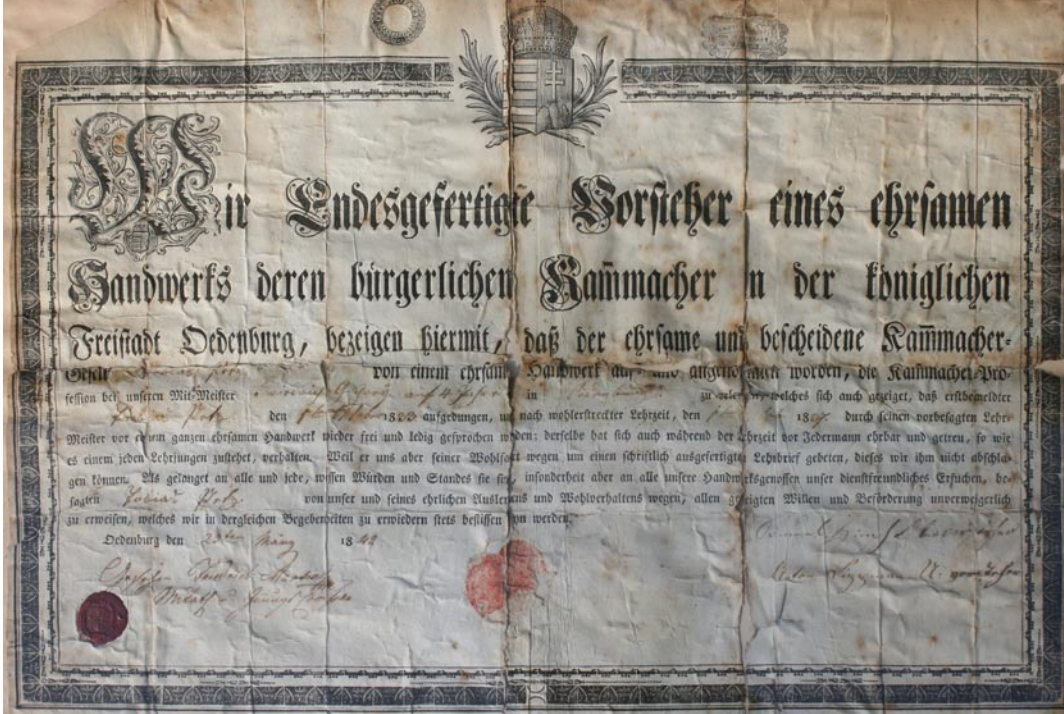 Wir Endesgefertigte Vorsteher eines ehrsamen
Handwerks deren bürgerlichen Kam̄macher in der königlichen
Freistadt Oedenburg, bezeigen hiermit, daß der ehrsame und bescheidene Kam̄macher-
Gesell von einem ehrsamen Handwerk auf- und angenommen worden, die Kam̄macher-Pro-
fession bei unseren Mit-Meister in zu erlernen, welches sich auch gezeiget, daß erstbemeldter
Tobias Petz den 1833 aufgedungen, und nach wohlerstreckter Lehrzeit, den 18 durch seinen vorbesagten Lehr-
Meister vor einem ganzen ehrsamen Handwerk wieder frei und ledig gesprochen worden: derselbe hat sich auch während der Lehrzeit vor Jedermann ehrbar und getreu, so wie
es einem jeden Lehrjungen zustehet, verhalten. Weil er uns aber seiner Wohlfart wegen um einen schriftlich ausgefertigten Lehrbrief gebeten, dieses wir ihm nicht abschla-
gen können. Als gelanget an alle und jede, wessen Würden und Standes sie sey, insonderheit aber an alle unsere Handwerksgenossen unser dienstfreundliches Ersuchen, be-
sagten Tobias Petz von unser und seines ehrlichen Auslernens und Wohlverhaltens wegen, allen geneigten Willen und Beförderung unverweigerlich
zu erweisen, welches wir in dergleichen Begebenheiten zu erwiedern stets beflissen seyn werden.
Oedenburg den März 1842